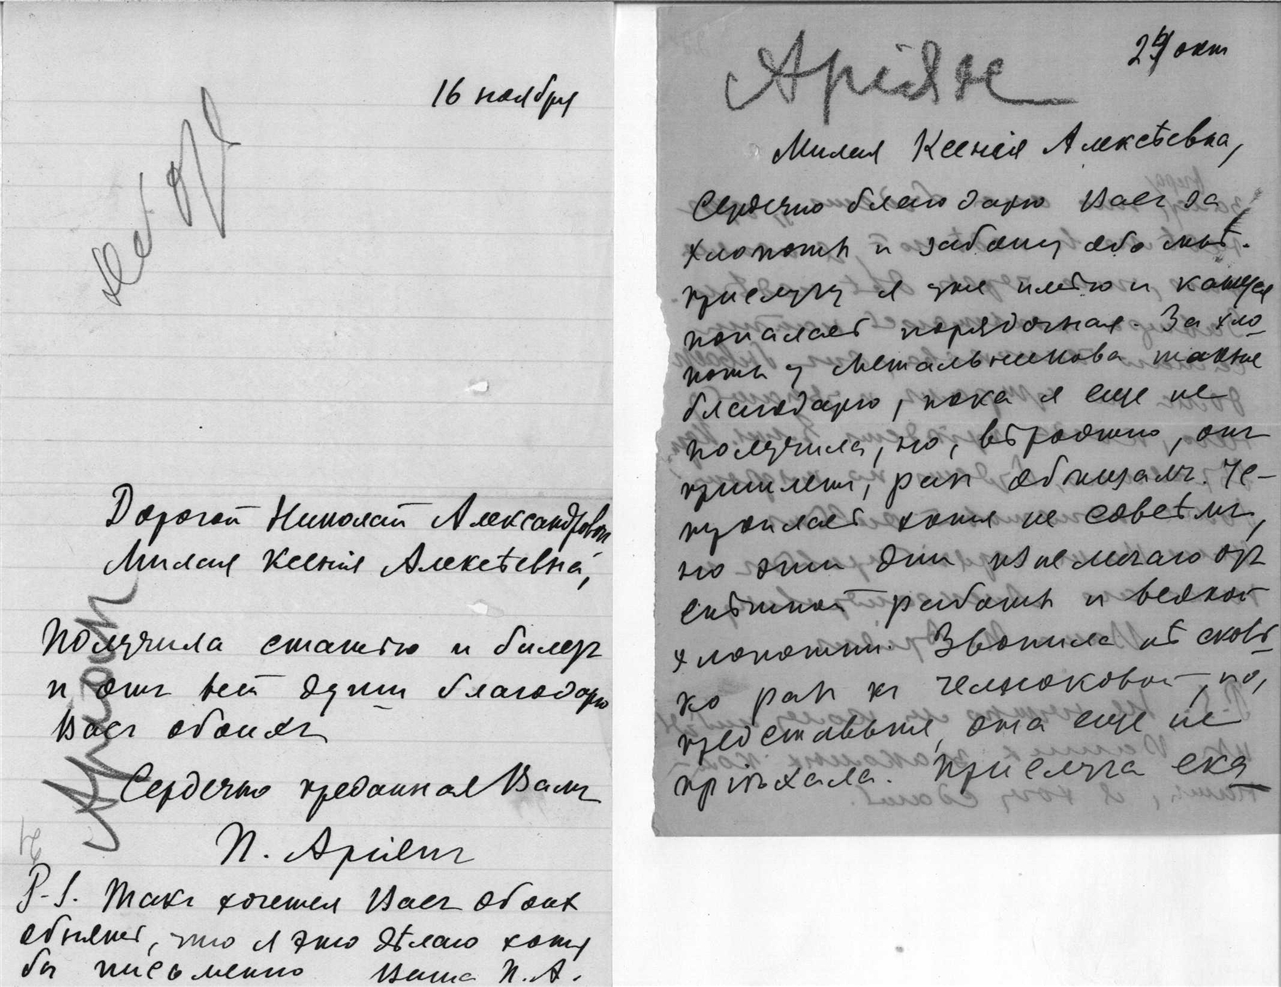 16 ноября
Дорогой Николай Александрович
Милая Ксенія Алексѣевна,
Получила статью и билетъ
и отъ всей души благодарю
Васъ обоихъ
Сердечно преданная Вамъ
П. Аріянъ
P.S. Такъ хочется Васъ обоих
обнять, что я это дѣлаю хотя
бы письменно Ваша П.А.
Аріян
24
Аріян
29 окт
Милая Ксенія Алексѣевна,
Сердечно благодарю Васъ за
хлопоты и заботу обо мнѣ.
Прислугу я уже имѣю и кажется
попалась порядочная. За хло
поты у Метальникова также
благодарю, пока я еще не
получила, но, вѣроятно, онъ
пришлетъ, раз обѣщалъ. Че-
хотя не совсѣмъ,
но эти дни изнемогаю отъ
спѣшной работы и всякой
хлопотни. Звонила нѣсколь
ко раз къ Челноковой, но,
представьте, она еще не
пріѣхала. Прислуга ска